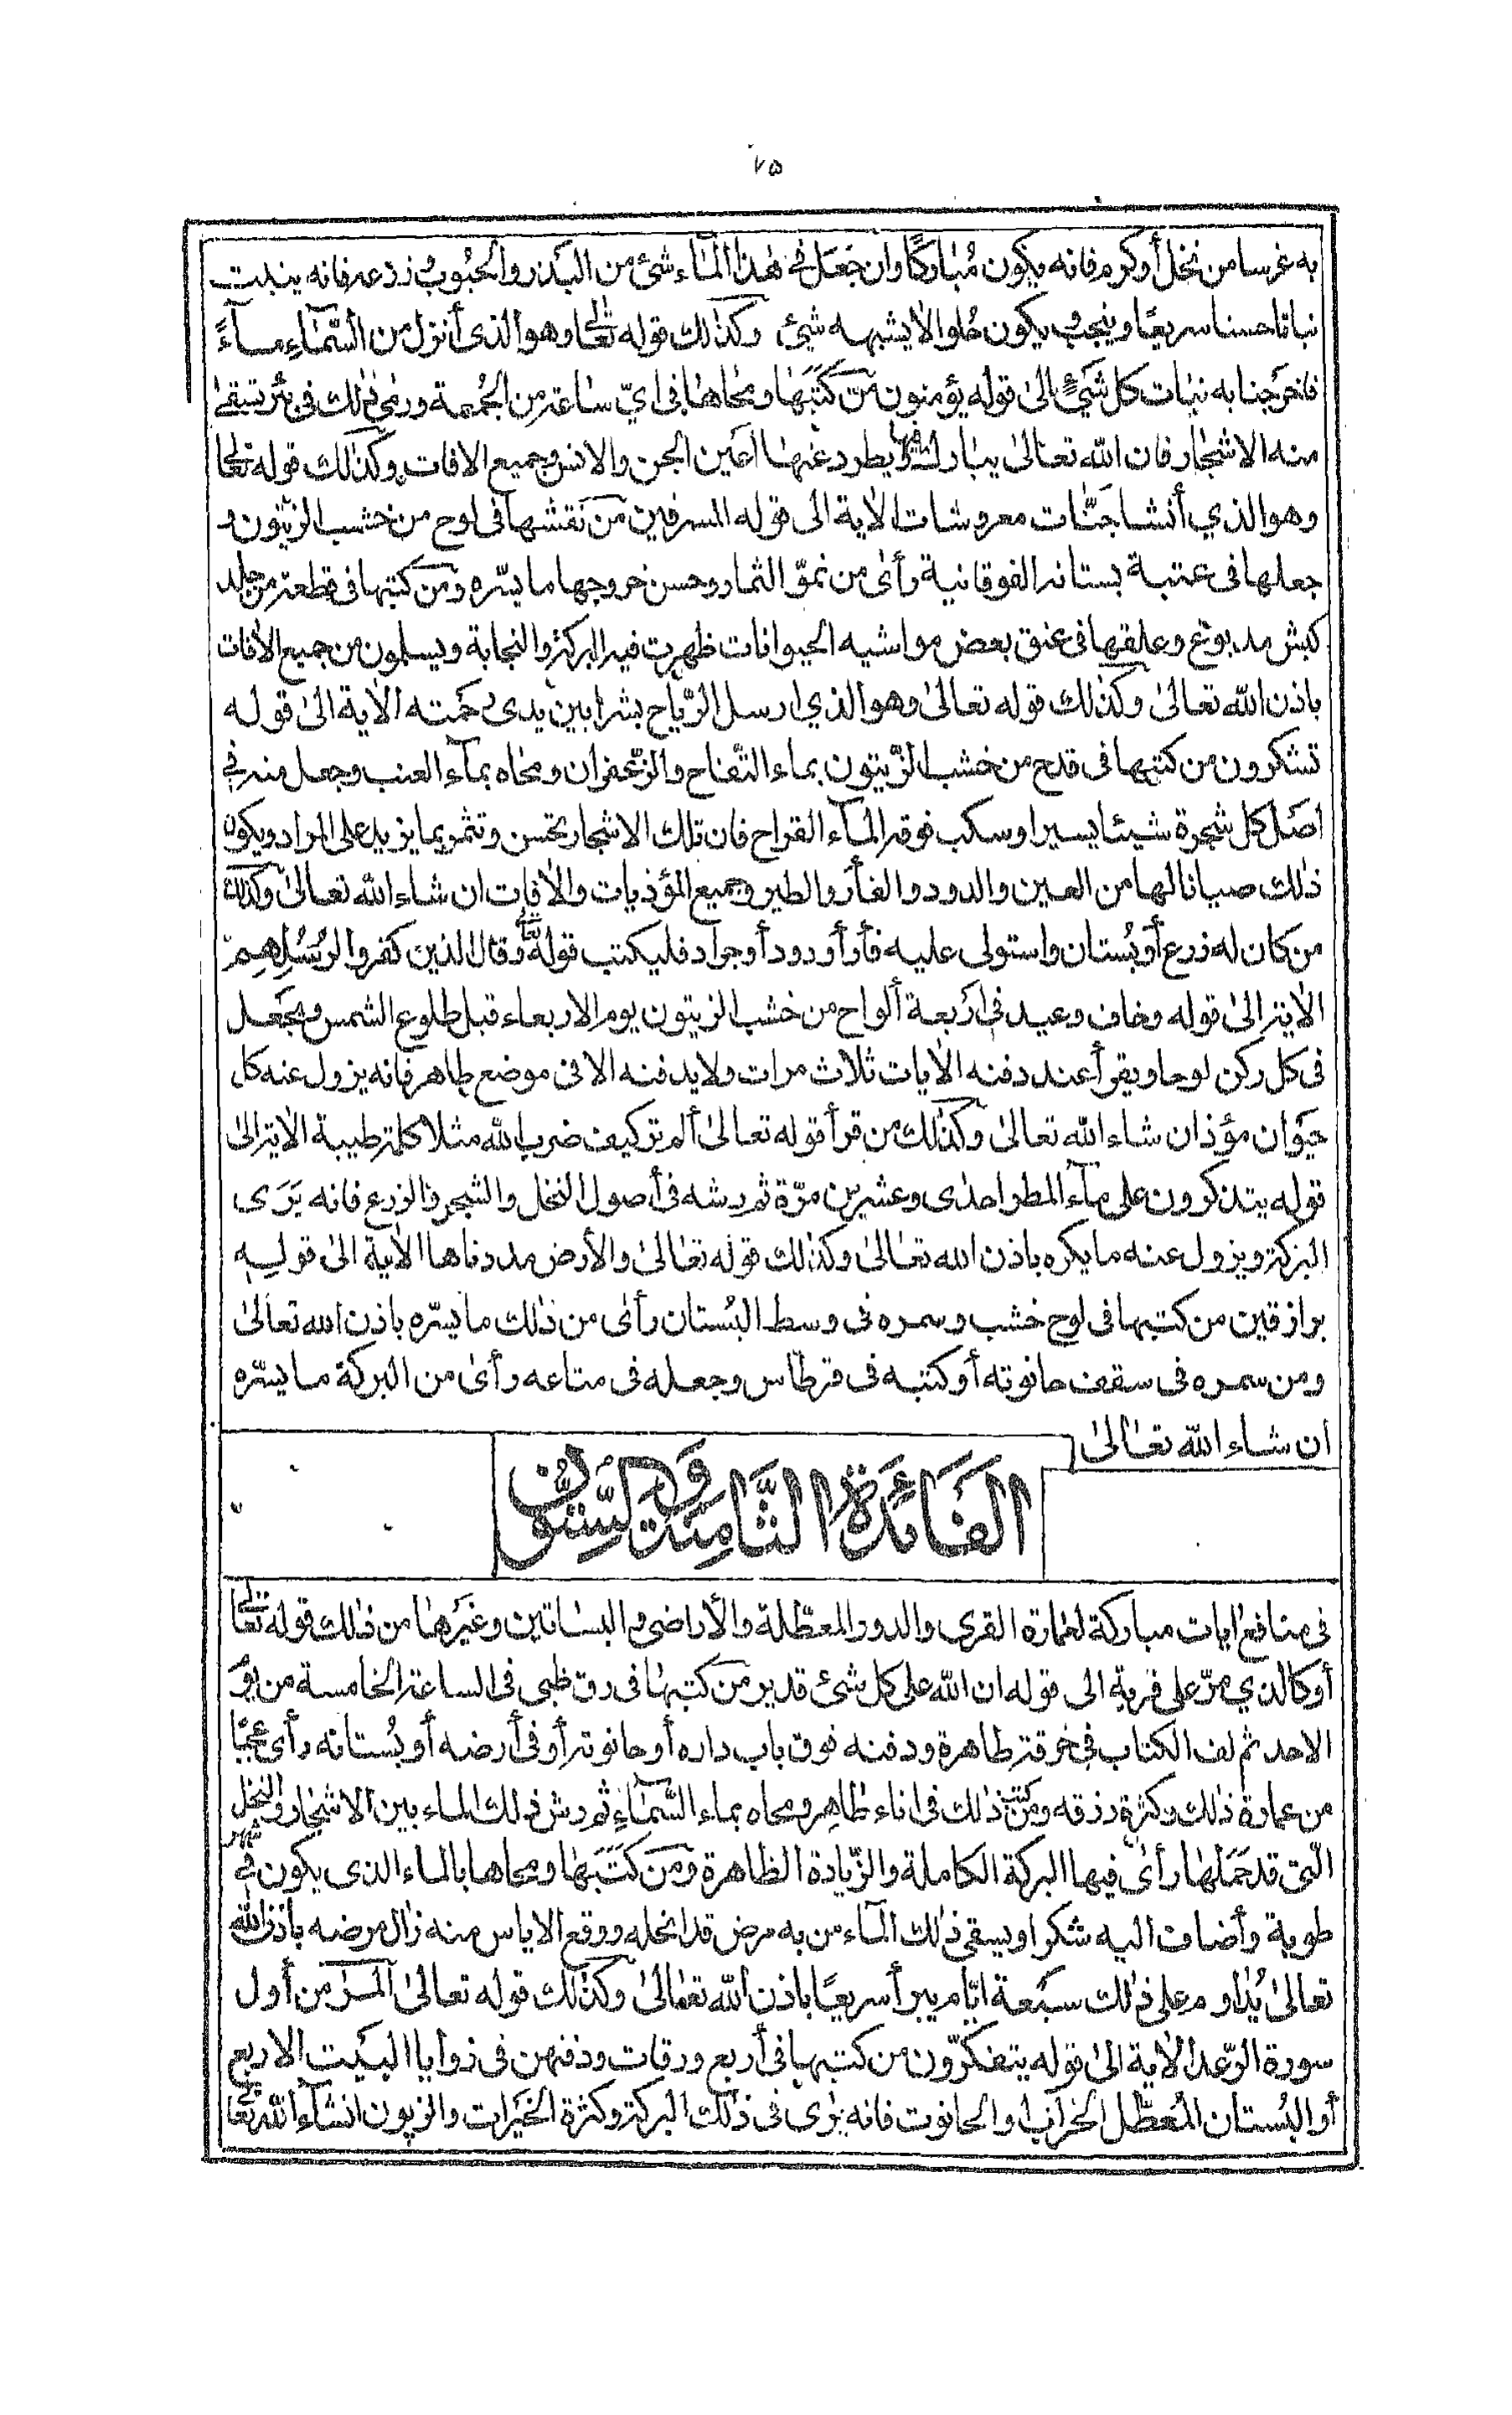 ٧٥
به غرسا من نخل أو كرم فانه يكون مُباركًا وان جَعَل في هٰذا المآء شئ من البَذر والحبُوب و زرعه فانه ينبت
نباتا حسنا سريعًا وينجب ويكون حُلوا لا يشبهه شيئ وكذلك قوله تعالىٰ وهو الذى أنزل من السَّمَاءِ مآءً
فاخرَجنا به نبات كل شَيْءٍ الىٰ قوله يؤمنون مَن كَتَبَها ومحاها فى ايّ ساعة من الجُمعة ورمىٰ ذٰلك فى بئر تسقىٰ
منه الاشجار فان الله تعالىٰ يبارك فيها ويطرد عنها اَعَين الجن والانس وجميع الافات وكذلك قوله تعالىٰ
وهو الذي أنشا جَنّات معروشات الاٰية الى قوله المسرفين مَن نَقشها فى لوح من خشب الزيتون و
جعلها فى عتبة بستانه الفوقانية رأىٰ من نموّ الثمار وحسن خروجها ما يسّره ومَن كتبها فى قطعة من جلد
كبش مدبوغ وعلقها فى عنق بعض مواشيه الحيوانات ظهرت فيه البركة والنجابة ويسلمون من جميع الاٰفات
باذن الله تعالىٰ وكذٰلك قوله تعالىٰ وهو الذي ارسل الرّياح بشرا بين يدى رحمته الاٰية الىٰ قوله
تشكرون من كتبها فى قدح من خشب الزّيتون بماء التّفاح والزّعفران ومحاه بمآء العنب وجعل منه في
اصل كل شجرة شيئا يسيرا وسكب فوقه المآء القراح فان تلك الاشجار تحسن وتثمر بما يزيد على المراد ويكون
ذٰلك صيانا لها من العين والدود والفأر والطير وجميع المؤذيات والاٰفات ان شاء الله تعالىٰ وكذلك
من كان له زرع أو بُستان واستولى عليه فأر أو دود أو جراد فليكتب قوله تعالىٰ وقال الذين كفروا لرُسُلِهِم
الاٰية الىٰ قوله وخاف وعيد فى اَربعة ألواح من خشب الزيتون يوم الاربعاء قبل طلوع الشمس ويجَعَل
فى كل ركن لوحا ويقرأ عند دفنه الاٰيات ثلاث مرات ولا يدفنه الا فى موضع طاهر فانه يزول عنه كل
حيَوان مؤذ ان شاء الله تعالىٰ وكذٰلك من قرأ قوله تعالىٰ ألم تر كيف ضرب الله مثلا كلمة طيبة الاٰية الىٰ
قوله يتذكرون على مآء المطر احدى وعشرين مرّة ثم رشه فى أصول النخل والشجر والزرع فانه يَرَى
البركة ويزول عنه ما يكره باذن الله تعالىٰ وكذلك قوله تعالىٰ والأرض مددناها الاٰية الىٰ قوله
برازقين من كتبها فى لوح خشب وسمره فى وسط البُستان رأىٰ من ذٰلك ما يسّره باذن الله تعالىٰ
ومن سمره فى سقف حانوته أو كتبه فى قرطاس وجعله فى متاعه رأىٰ من البركة ما يسّره
ان شاء الله تعالىٰ
الفَائدَة الثَّامِنَة وَالسِّتُّون
فى منافع اٰيات مباركة لعمارة القرى والدور المعطّلة والأراضى والبساتين وغيرها من ذلك قوله تعالىٰ
أو كالذي مرّ على قرية الى قوله ان الله على كل شئ قدير مَن كتبها فى رق ظبى فى الساعة الخامسة من يوم
الاحد ثم لف الكتاب في خرقة طاهرة ودفنه فوق باب داره أو حانوته أو فى أرضه أو بُستانه رأى عجبًا
من عمارة ذٰلك وكثرة رزقه ومَن كتب ذٰلك فى اناء طاهر ومحاه بماء السَّمَاءِ ثم رش ذٰلك الماء بين الاشجار والنخل
الّتى قد حَمَلها رأىٰ فيها البركة الكاملة والزّيادة الظاهرة ومَن كَتَبَها ومحاها بالماء الذى يكون في شهر
طوبة وأضاف اليه شكرا ويسقى ذٰلك المآء من به مرض قد انحله ووقع الاياس منه زال مرضه باذن الله
تعالىٰ يُداوم على ذٰلك سَبعة ايّام يبرأ سريعًا باذن الله تعالىٰ وكذلك قوله تعالىٰ المٓرٰ من أول
سورة الرّعد الاٰية الىٰ قوله يتفكرّون من كتبها فى أربع ورقات ودفنهن فى زوايا البَيت الاربع
أو البُستان المُعطّل الخراب أو الحانوت فانه يرٰى فى ذٰلك البركة وكثرة الخَيرات والزبون انشآء الله تعالىٰ